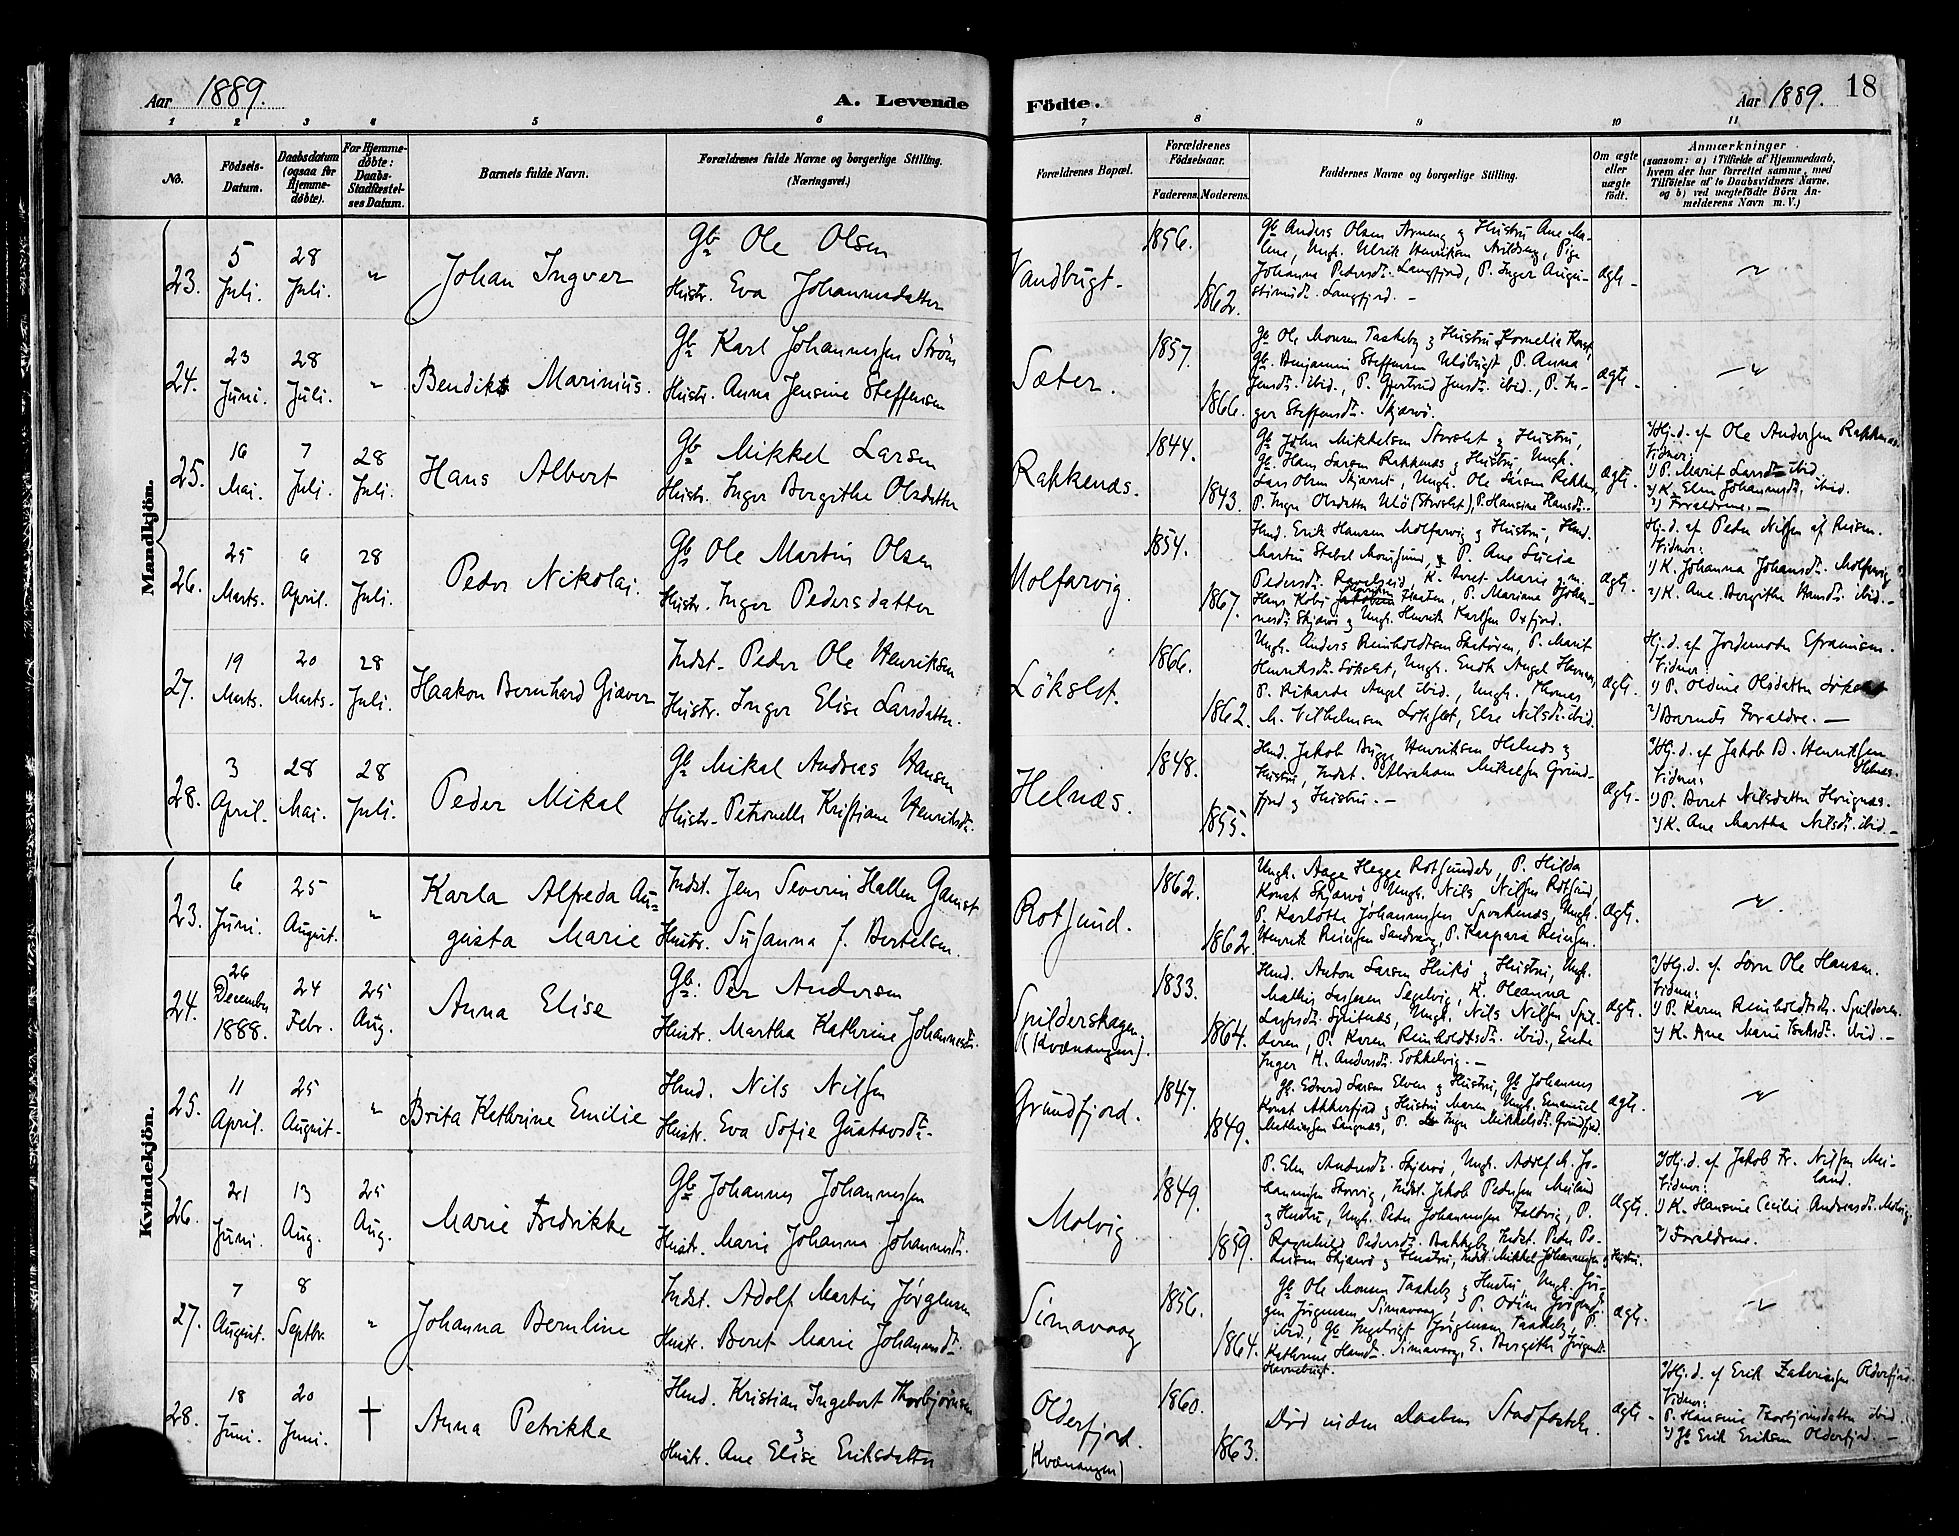 Aar 1889.
A. Levende
Födte.
Aar 1889.
18
1 2 3 4 5 6 7 8 9 10 11
No.
Födsels-Datum.
Daabsdatum (ogsaa for Hjemmedöbte).
For Hjemmedöbte: Daabs-Stadfæstelses Datum.
Barnets fulde Navn.
Forældrenes fulde Navne og borgerlige Stilling. (Næringsvei.)
Forældrenes Bopæl.
Forældrenes Födselsaar.
Faderens. Moderens.
Faddernes Navne og borgerlige Stilling.
Om ægte eller uægte födt.
Anmærkninger
(saasom: a) i Tilfælde af Hjemmedaab, hvem der har forrettet samme, med Tilföielse af to Daabsvidners Navne, og b) ved uegtefödte Börn Anmelderens Navn m. V.)
Mandkjön.
23.
5 Juli.
28 Juli.
"
Johan Ingver
Gb. Ole Olsen
Hustr. Eva Johannesdatter
Vandbugt.
1856.
1862.
Gb Anders Olsen & Hustru Ane Ma-
lene, Ungk. Ulrik Henriksen, Pige
Johanna Pedersdr. Langfjord, P. Inger Augu-
stinusdr. Langfjord. -
ægte -
24.
23 Juni.
28 Juli.
"
Bendikt Marinius.
Gb. Karl Johannessen Ström
Hustr. Anna Jensine Steffensen
Sæter.
1857.
1866.
Gb Ole Monsen Taskeby & Hustru Kornelia
Gb. Benjamin Steffensen Ulöbugt, P. Anna
Jensdr. ibid., P. Gjertrud Jensdr. ibid., P. In-
ger Steffensdr. Skjærvö.
ægte -
25.
16 Mai.
7 Juli.
28 Juli.
Hans Albert
Gb. Mikkel Larsen
Hustr. Inger Bergithe Olsdatter
Rakkenæs.
1844.
1843.
Gb. John Mikkelsen Storslet & Hustru,
Gb. Hans Larsen Rakkenæs & Hustru, Ungk.
Lars Olsen, Ungk. Ole Larsen
P. Inger Olsdatter Ulö (Storslet), P. Hansine Hansdr.
ægte.
Hj. d. af Ole Andersen
Vidner:
1) P. Marit Larsdr. ibid.
2) K. Elen Johannesdr. ibid.
Forældrene. -
26.
25 Marts.
6 April.
28 Juli.
Peder Nikolai.
Gb. Ole Martin Olsen
Hustr. Inger Pedersdatter
Molfarvig.
1854.
1867.
Hmd. Erik Hansen Molfarvig & Hustru, Hmd.
Martin, P. Ane Lucia
Pedersdr., K. Beret Marie
Hans, P. Mariane Johan-
nesdr. Skjærvö & Ungk. Henrik Karlsen Oxfjord.
ægte.
Hj. d. af Peder Nilsen af Reisen.
Vidner:
1) K. Johanna Johansdr. Molfarvig
2) K. Ane Bergithe Hansdr. ibid. -
27.
19 Marts.
20 Marts.
28 Juli.
Haakon Bernhard Giæver
Indst. Peder Ole Henriksen
Hustr. Inger Elise Larsdatter.
Lökslet.
1866.
1862.
Ungk. Anders Reinholdtsen, P. Marit
Henriksdr. Lökslet, Ungk.
P. Rikarda Angel ibid., Ungk. Thomas
A. Vilhelmsen Lökslet, Else Nilsdr. ibid.
ægte.
Hj. d. af Jordemoder Efraimsen.
Vidner:
1) P. Oldine Olsdatter
2) Barnets Forældre. -
28.
3 April.
28 Mai.
28 Juli.
Peder Mikal
Gb. Mikal Andreas Hansen
Hustr. Petronelle Kristiane Henriksdr.
Helnæs.
1848.
1855.
Hmd. Jakob Bugge Henriksen Helnæs &
Hustru, Indst. Abraham Mikelsen Grund-
fjord & Hustru. -
ægte.
Hj. d. af Jakob B. Henriksen
Helnæs.
Vidner:
1) P. Beret Nilsdatter
2) K. Ane Martha Nilsdr. ibid. -
Kvindekjön.
23.
6 Juni.
25 August.
"
Karla Alfreda Au-
gusta Marie
Indst. Jens Severin Hallen Gamst
Hustr. Susanna J. Bertelsen.
Rotsund.
1862.
1862.
Ungk. Aage Hegge Rotsundelv, P. Hilda
Konst Skjærvö, Ungk. Nils Nilsen Rotsund,
P. Karlotte Johannessen, Ungk.
Henrik Reiersen, P. Kaspara Reiersen.
ægte.
24.
26 December 1888.
24 Febr.
25 Aug.
Anna Elise
Gb. Per Andersen
Hustr. Martha Kathrine Johannesdr.
Spilderskagen
(Kvænangen).
1833.
1864.
Hmd. Anton Larsen & Hustru, Ungk.
Mathis Segelvig, K. Oleanna
Ungk. Nils Nilsen Spil-
deren, P. Karen Reinholdtsdr. ibid., Enke
Inger K. Andersdr. Sokkelvig. -
ægte.
Hj. d. af Sörn Ole Hansen.
Vidner:
1) P. Karen Reinholdtsdr. Spilderen.
2) K. Ane Marie Isaksdr. ibid. -
25.
11 April.
25 August -
"
Brita Kathrine Emilie
Hmd. Nils Nilsen
Hustr. Eva Sofie Gustavsdr.
Grundfjord.
1847.
1849.
Gb. Edvard Larsen Elven & Hustru, Gb Johannes
Konst Akkerfjord & Hustru Maren, Ungk. Emanuel
Mathiesen, P. Inger Mikkelsdr. Grundfjord.
ægte.
26.
21 Juni.
13 Aug.
25 Aug.
Marie Fredrikke
Gb. Johannes Johannessen
Hustr. Marie Johanna Johannesdr.
Molvig
1849.
1859.
P. Elen Andersdr. Skjærvö, Ungk. Adolf M. Jo-
hannesen, Indst. Jakob Pedersen Meiland
& Hustru, Ungk. Peder Johannessen, P.
Ragnhild Pedersdr. Bakkeby, Indst. Peder Pe-
dersen Skjærvö & Hustru, Indst. Mikkel Johannessen & Hustru.
ægte.
Hj. d. af Jakob Fr. Nilsen Mei-
land.
Vidner:
1) K. Hansine Cecilie Andreasdr. Molvig
2) Forældrene.
27.
7 August.
8 Septbr.
"
Johanna Berntine
Indst. Adolf Martin Jörgensen
Hustr. Beret Marie Johannesdr.
Simavaag
1856.
1864.
Gb Ole Monsen Taskeby & Hustru, Ungk. Jör-
gen Jörgensen Simavaag, P. Odine Jörgensdr.
ibid., Gb Ingebrigt Jörgensen Taskeby, P.
Kathrine Hansdr. Simavaag, E. Bergithe Jörgensdr.
Havnebugt.
ægte.
28.
18 Juni.
20 Juni.
†
Anna Petrikke
Hmd. Kristian Ingebert Thorbjörnsen
Hustr. Ane Elise Eriksdatter
Olderfjord.
(Kvænangen)
1860.
1863.
Död inden Daabens Stadfæstelse.
ægte -
Hj. d. af Erik Olderfjord.
Vidner:
P. Hansine Thorbjörnsdatter ibid.
2) Gb Erik Eriksen Olderfjord. -